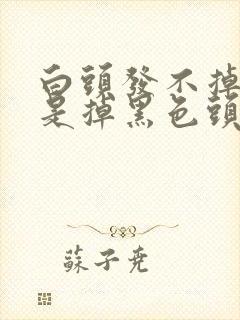 白頭發不掉
是掉黑色頭
蘇子堯